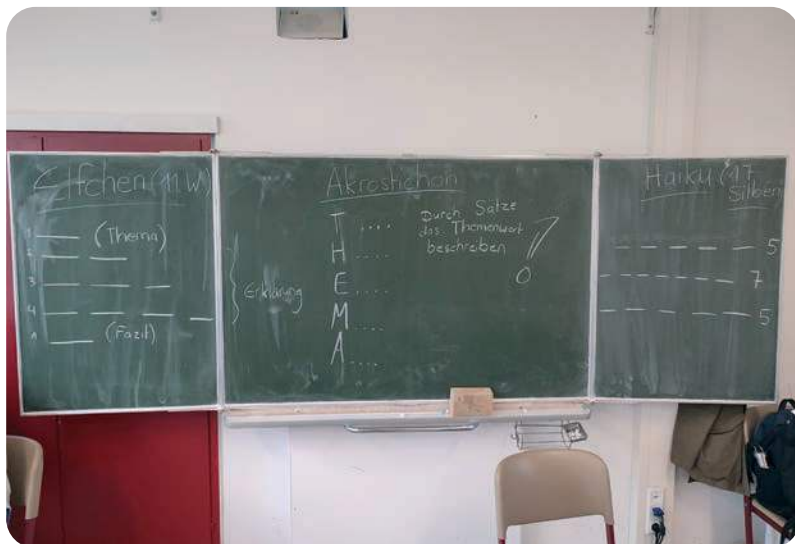 Elfchen (11 W)
1 ___ (Thema)
2 ___ ___
3 ___ ___ ___
4 ___ ___ ___ ___
1 ___ (Fazit)
Erklärung
Akrostichon
T ....
H ....
E ....
M ....
A ....
Durch Sätze
das Themenwort
beschreiben !
Haiku (17
Silben
_ _ _ _ _ 5
_ _ _ _ _ _ _ 7
_ _ _ _ _ 5